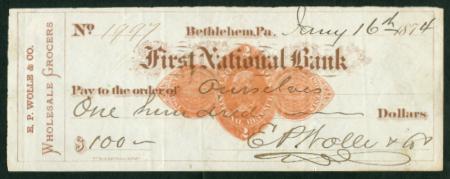 E. P. WOLLE & CO.
WHOLESALE GROCERS
No 1997 Bethlehem, Pa. Jany 16th 1874
First National Bank
Pay to the order of Ourselves
One hundred Dollars
$100
E P Wolle & Co